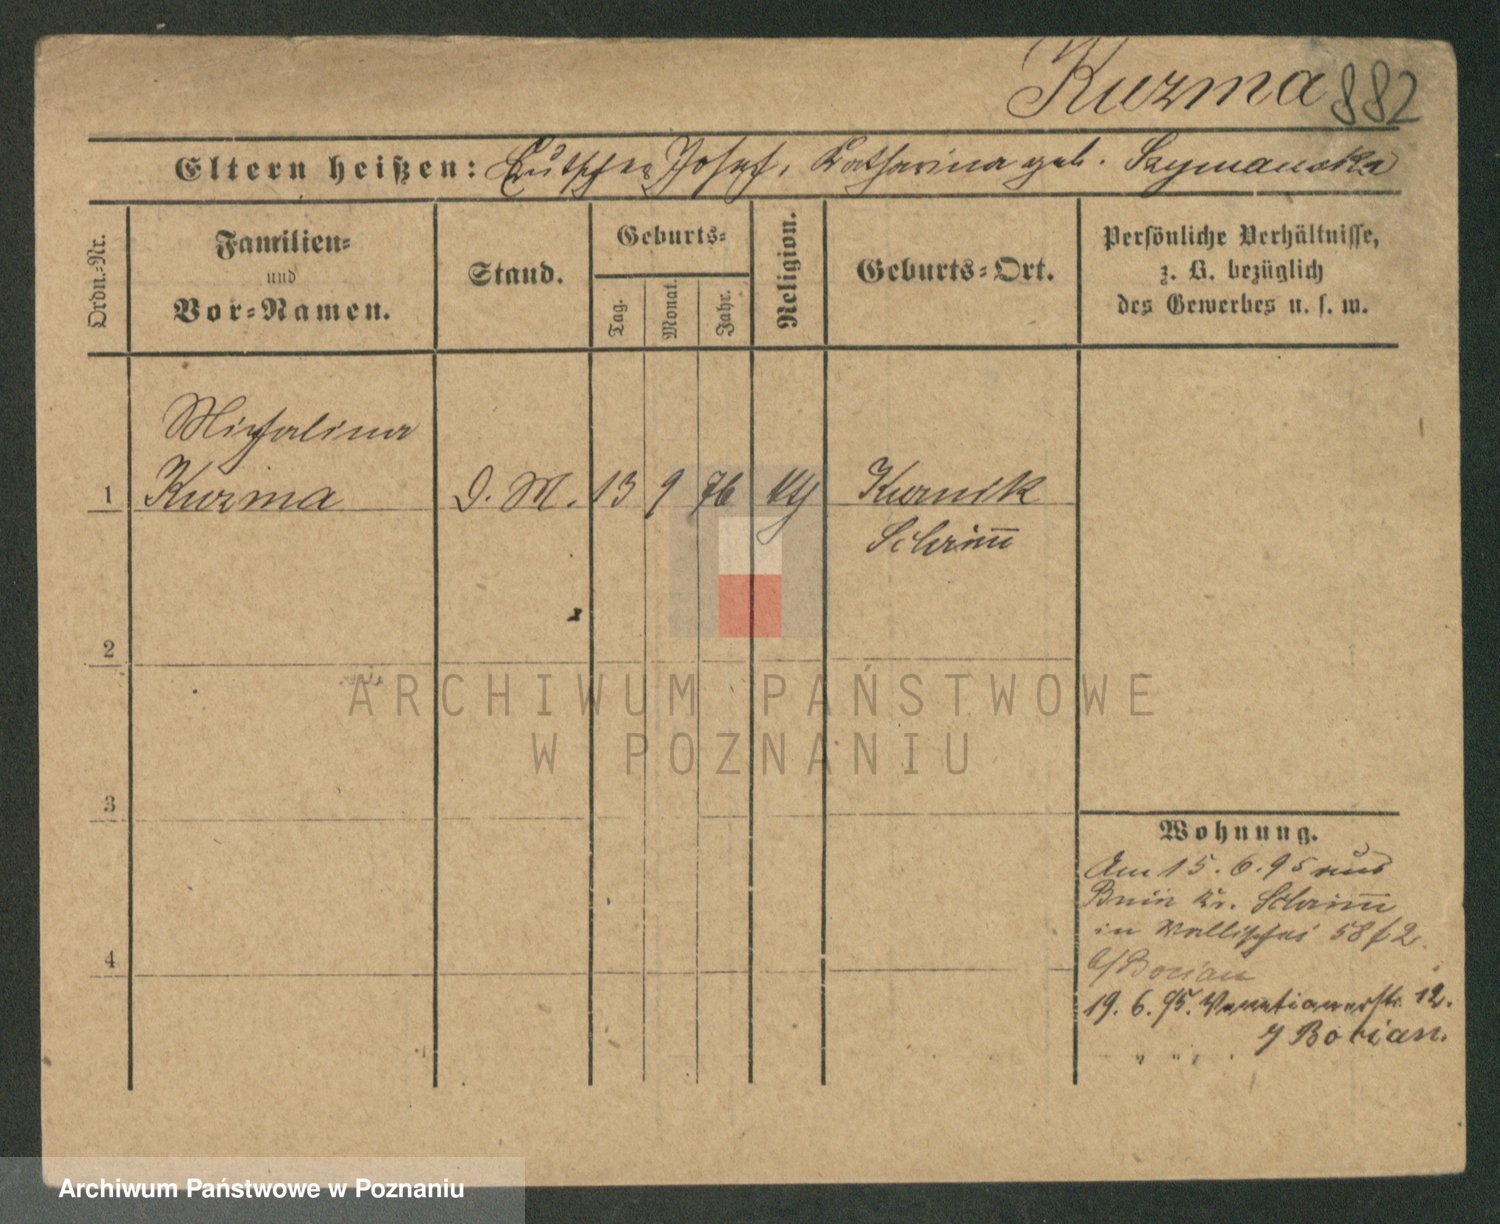 Kuzma 882
Eltern heißen: Kutscher Josef, Katharina geb. Szymanska
Ordn.-Nr.
Familien-
und
Vor-Namen.
Stand.
Geburts-
Tag.
Monat.
Jahr.
Religion.
Geburts-Ort.
Persönliche Verhältnisse,
z. B. bezüglich
des Gewerbes u. s. w.
Michalina
1 Kuzma D. M. 13 9 76 Kurnik
Schrim̅
2
ARCHIWUM PAŃSTWOWE
W POZNANIU
3
4
Wohnung.
Am 15. 6. 95 aus
Bnin Kr. Schrim̅
in Wallischei 58 f 2.
b/ Bocian
19. 6. 95. Venetianerstr. 12.
Bocian.
Archiwum Państwowe w Poznaniu